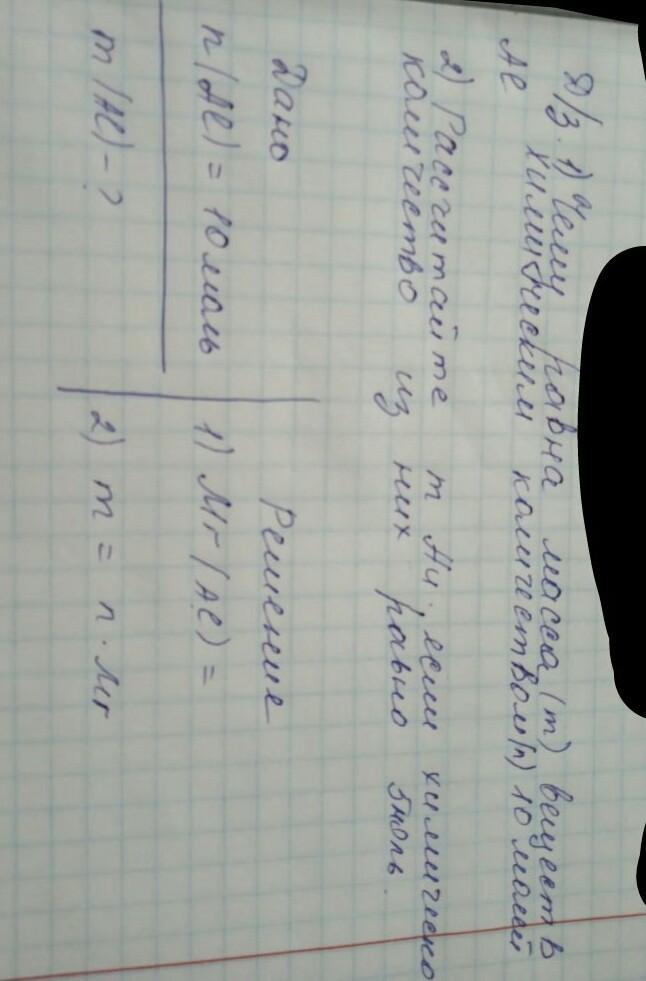 Д/З. 1) Чему равна масса (m) веществ
Al химическим количеством (n) 10 молей
2) Рассчитайте m Au, если химическо
количество из них равно 5моль.
Дано
Решение
n(Al) = 10 моль
1) Mr(Al) =
m(Al) - ?
2) m = n · Mr